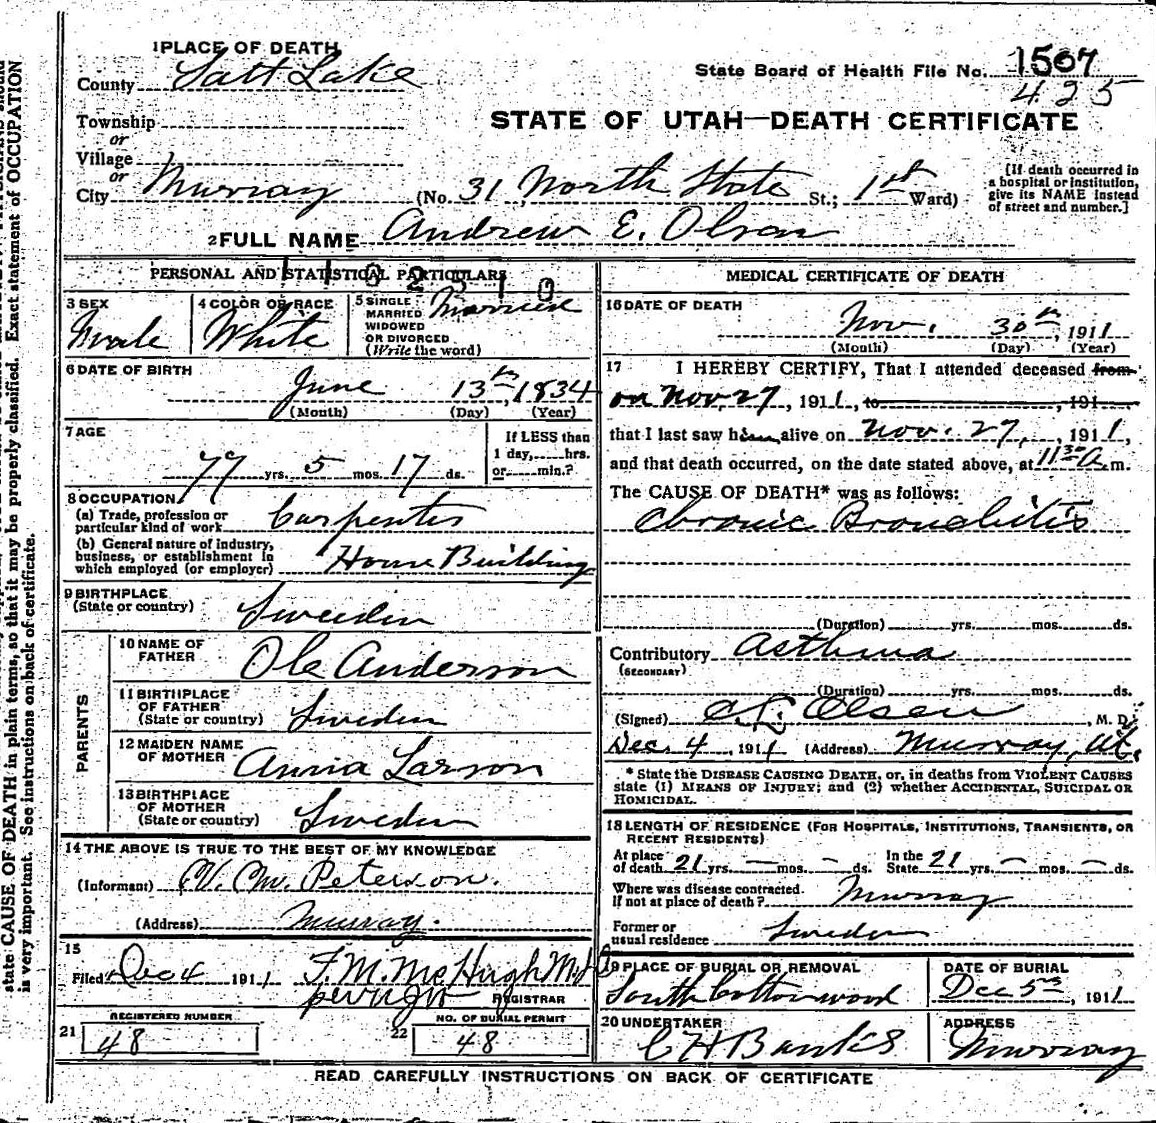 1 PLACE OF DEATH
County Salt Lake
State Board of Health File No. 1507
425
Township
or
Village
or
City Murray (No. 31, North State St.; 1st Ward)
STATE OF UTAH—DEATH CERTIFICATE
[If death occurred in a hospital or institution, give its NAME instead of street and number.]
2 FULL NAME Andrew E. Olson
PERSONAL AND STATISTICAL PARTICULARS
3 SEX Male
4 COLOR OR RACE White
5 SINGLE MARRIED WIDOWED OR DIVORCED (Write the word) Married
6 DATE OF BIRTH
June 13th, 1834
(Month) (Day) (Year)
7 AGE
77 yrs. 5 mos. 17 ds.
If LESS than 1 day, hrs. or min.?
8 OCCUPATION
(a) Trade, profession or particular kind of work Carpenter
(b) General nature of industry, business, or establishment in which employed (or employer) House Building
9 BIRTHPLACE
(State or country) Sweeden
PARENTS
10 NAME OF FATHER Ole Anderson
11 BIRTHPLACE OF FATHER (State or country) Sweden
12 MAIDEN NAME OF MOTHER Anna Larson
13 BIRTHPLACE OF MOTHER (State or country) Sweden
14 THE ABOVE IS TRUE TO THE BEST OF MY KNOWLEDGE
(Informant) Peterson.
(Address) Murray.
15
Filed Dec 4 1911 F. M. McHugh M.D.
REGISTRAR
REGISTERED NUMBER
21 48
NO. OF BURIAL PERMIT
22 48
MEDICAL CERTIFICATE OF DEATH
16 DATE OF DEATH
Nov. 30th, 1911
(Month) (Day) (Year)
17 I HEREBY CERTIFY, That I attended deceased from
on Nov. 27, 1911, to , 191 ,
that I last saw him alive on Nov. 27, , 1911,
and that death occurred, on the date stated above, at 11 30 A.m.
The CAUSE OF DEATH* was as follows:
Chronic Bronchitis
(Duration) yrs. mos. ds.
Contributory Asthma
(SECONDARY)
(Duration) yrs. mos. ds.
(Signed) C. L. Olsen, M. D.
Dec. 4, 1911 (Address) Murray, Ut.
* State the DISEASE CAUSING DEATH, or, in deaths from VIOLENT CAUSES
state (1) MEANS OF INJURY; and (2) whether ACCIDENTAL, SUICIDAL OR
HOMICIDAL.
18 LENGTH OF RESIDENCE (FOR HOSPITALS, INSTITUTIONS, TRANSIENTS, OR RECENT RESIDENTS)
At place of death 21 yrs. — mos. — ds. In the State 21 yrs. — mos. — ds.
Where was disease contracted. if not at place of death? Murray
Former or usual residence Sweden
19 PLACE OF BURIAL OR REMOVAL
South Cottonwood
DATE OF BURIAL
Dec 5th, 1911
20 UNDERTAKER
C H Banks
ADDRESS
Murray
READ CAREFULLY INSTRUCTIONS ON BACK OF CERTIFICATE
state CAUSE OF DEATH in plain terms, so that it may be properly classified. Exact statement of OCCUPATION
is very important. See instructions on back of certificate.